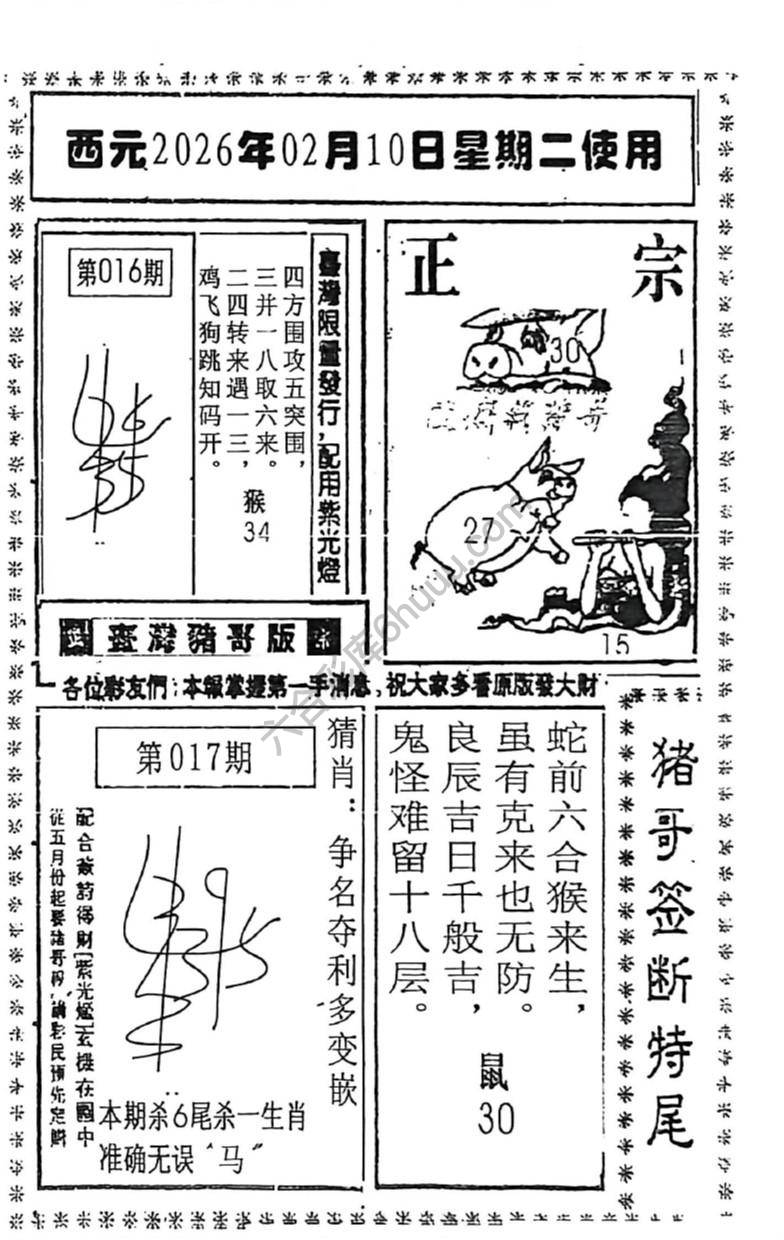 西元2026年02月10日星期二使用
正宗
30
27
15
臺灣限量發行,配用紫光燈
四方围攻五突围,
三并一八取六来。
二四转来遇一三,
鸡飞狗跳知码开。
猴
34
第016期
臺灣豬哥版
各位彩友們:本報掌握第一手消息,祝大家多看原版發大財
猪哥签断特尾
蛇前六合猴来生,
虽有克来也无防。
良辰吉日千般吉,
鬼怪难留十八层。
鼠
30
猜肖:争名夺利多变嵌
第017期
本期杀6尾杀一生肖
准确无误“马”
六合彩库6huuu.com